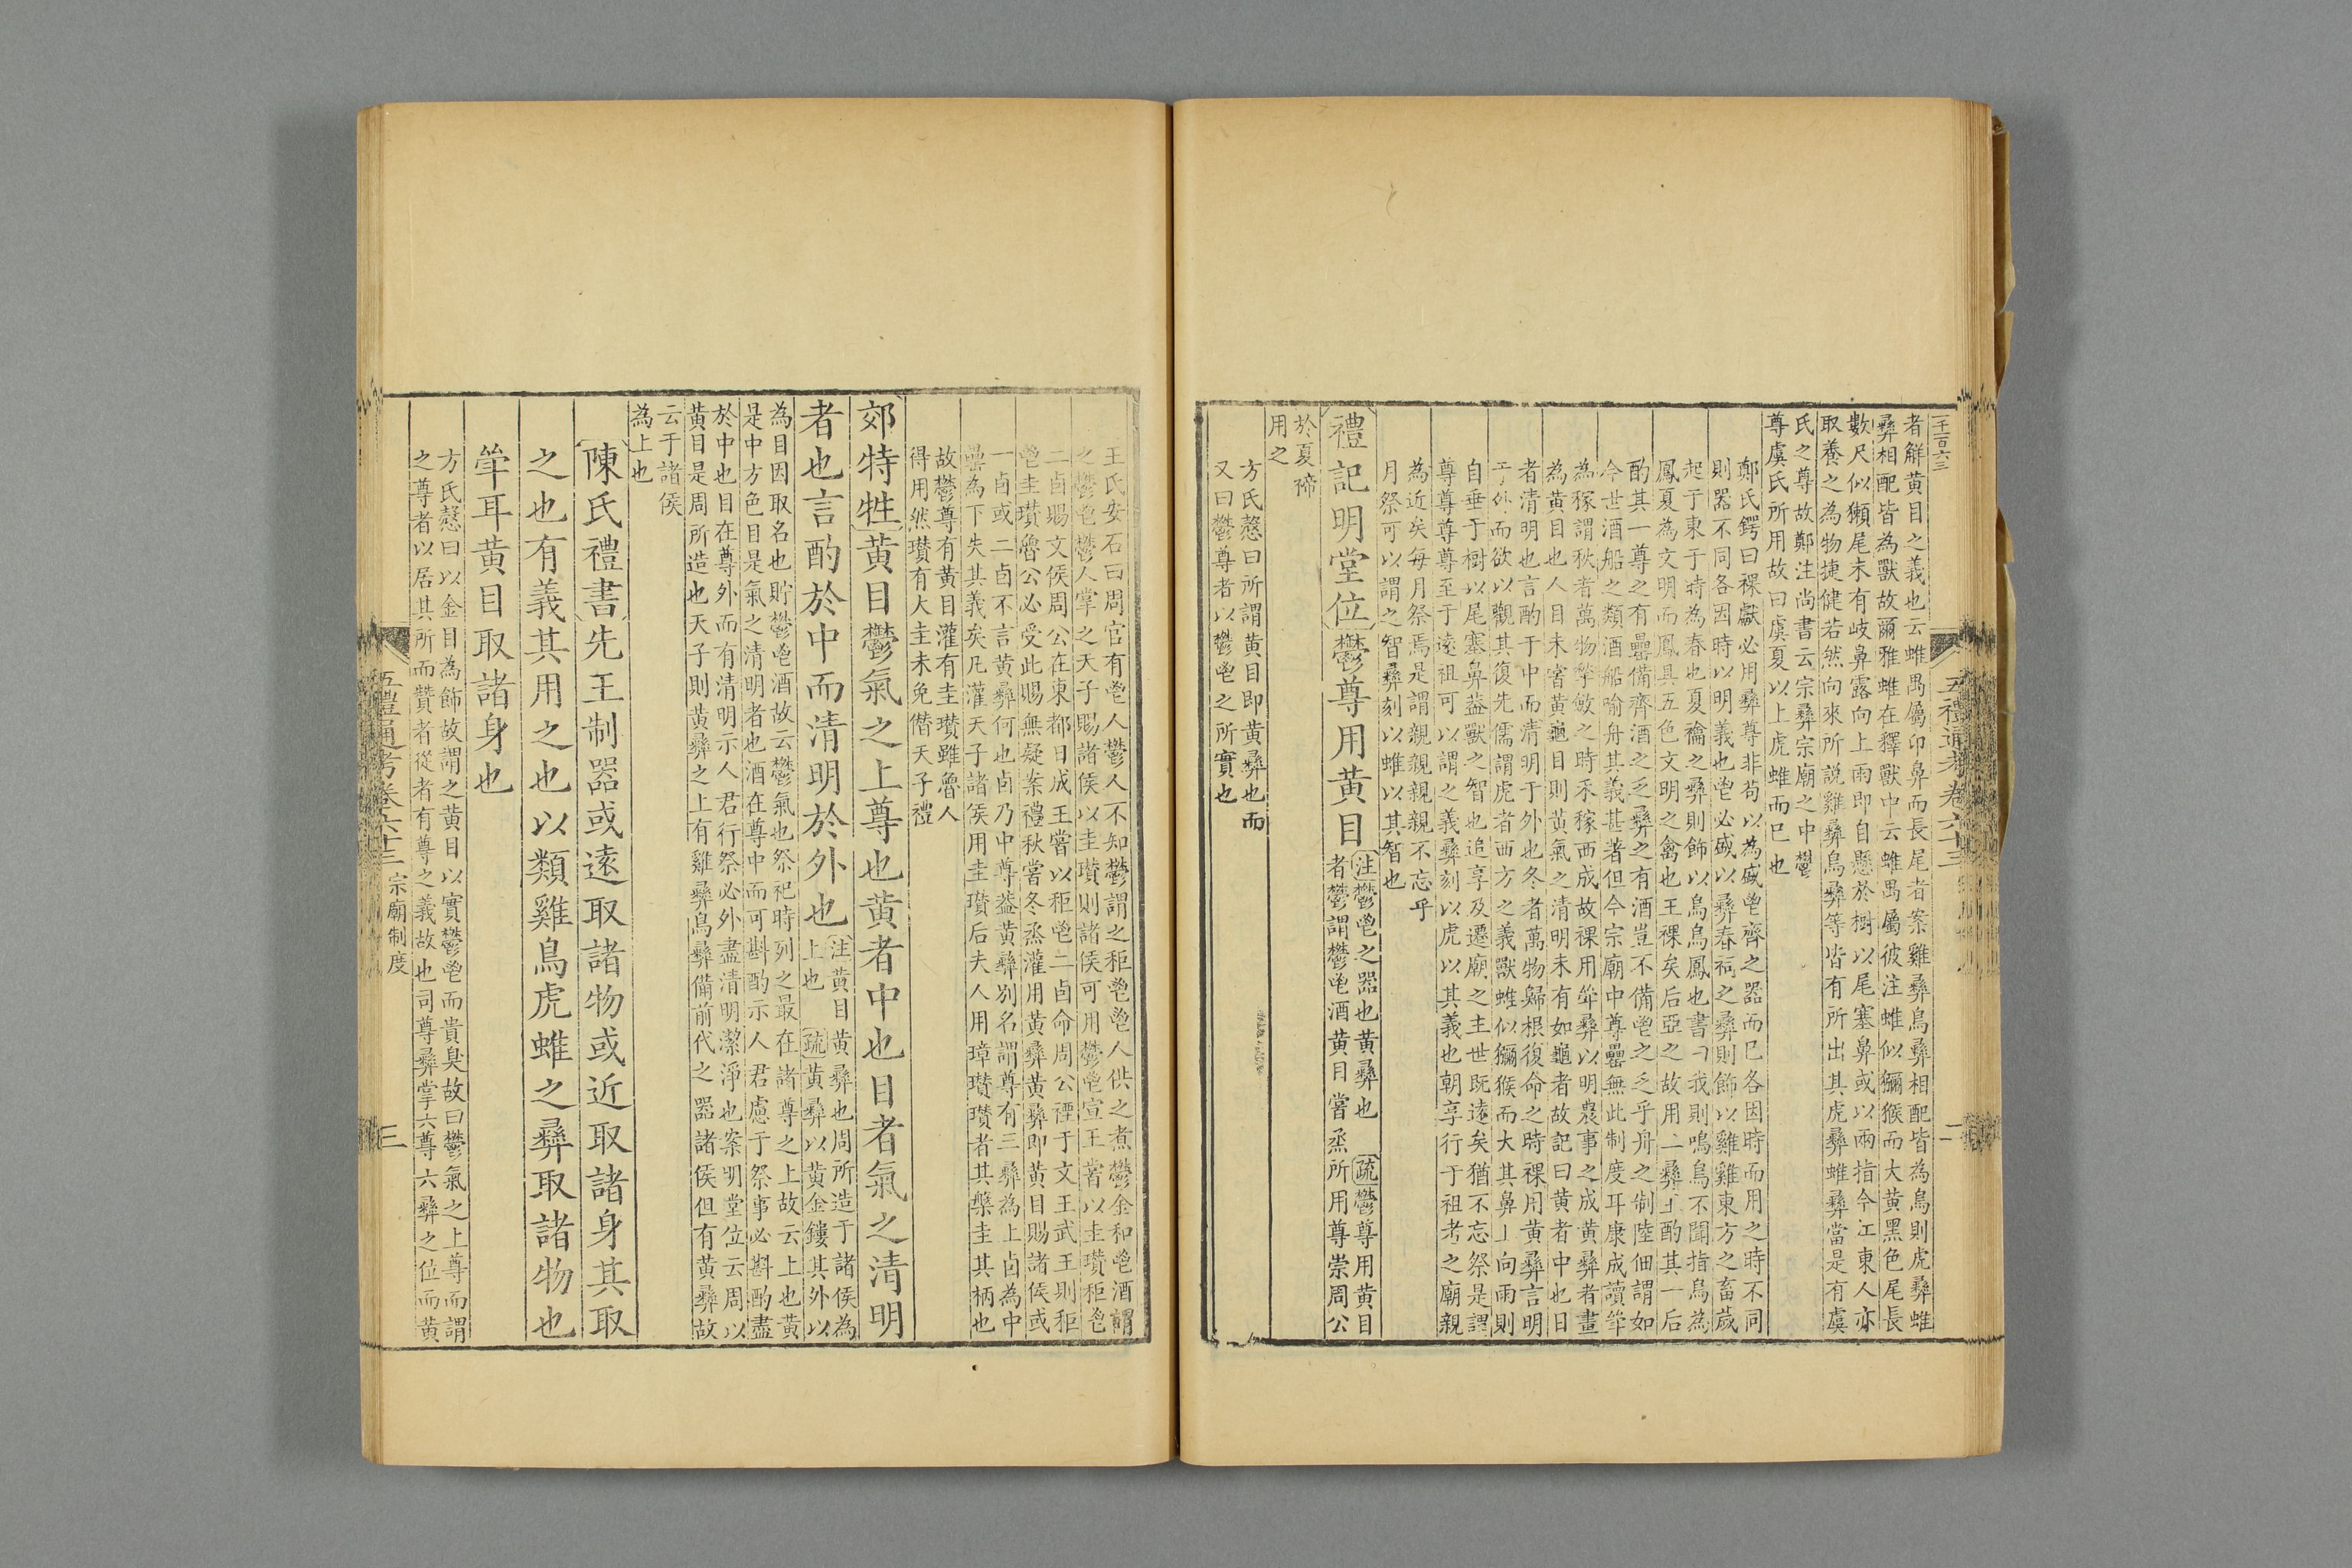 一千一百六三
者解黄目之義也云蜼禺屬卬鼻而長尾者案雞彝鳥彝相配皆為鳥則虎彝蜼
彝相配皆為獸故爾雅蜼在釋獸中云蜼禺屬彼注蜼似獼猴而大黄黑色尾長
數尺似獺尾末有岐鼻露向上雨即自懸於樹以尾塞鼻或以兩指今江東人亦
取養之為物捷健若然向來所説雞彝鳥彝等皆有所出其虎彝蜼彝當是有虞
氏之尊故鄭注尚書云宗彝宗廟之中鬱
尊虞氏所用故曰虞夏以上虎蜼而已也
鄭氏鍔曰祼獻必用彝尊非苟以為盛鬯齊之器而已各因時而用之時不同
則器不同各因時以明義也鬯必盛以彝春祠之彝則飾以雞雞東方之畜歲
起于東于時為春也夏禴之彝則飾以鳥鳥鳳也書曰我則鳴鳥不聞指鳥為
鳳夏為文明而鳳具五色文明之禽也王祼矣后亞之故用二彝王酌其一后
酌其一尊之有罍備齊酒之乏彝之有酒豈不備鬯之乏乎舟之制陸佃謂如
今世酒船之類酒船喻舟其義甚著但今宗廟中尊罍無此制度耳康成讀斝
為稼謂秋者萬物揫斂之時禾稼西成故祼用斝彝以明農事之成黄彝者畫
為黄目也人目未嘗黄龜目則黄氣之清明未有如龜者故記曰黄者中也目
者清明也言酌于中而清明于外也冬者萬物歸根復命之時祼用黄彝言明
于外而欲以觀其復先儒謂虎者西方之義獸蜼似獼猴而大其鼻上向雨則
自垂于樹以尾塞鼻葢獸之智也追享及遷廟之主世既遠矣猶不忘祭是謂
尊尊尊尊至于遠祖可以謂之義彝刻以虎以其義也朝享行于祖考之廟親
為近矣每月祭焉是謂親親親親不忘乎
月祭可以謂之智彝刻以蜼以其智也
禮記明堂位鬱尊用黄目
注鬱鬯之器也黄彝也　疏鬱尊用黄目
者鬱謂鬱鬯酒黄目嘗烝所用尊崇周公
於夏禘
用之
方氏慤曰所謂黄目即黄彝也而
又曰鬱尊者以鬱鬯之所實也
五禮通考卷六十三
二
王氏安石曰周官有鬯人鬱人不知鬱謂之秬鬯鬯人供之煮鬱金和鬯酒謂
之鬱鬯鬱人掌之天子賜諸侯以圭瓚則諸侯可用鬱鬯宣王嘗以圭瓚秬鬯
二卣賜文侯周公在東都日成王嘗以秬鬯二卣命周公禋于文王武王則秬
鬯圭瓚魯公必受此賜無疑案禮秋嘗冬烝灌用黄彝黄彝即黄目賜諸侯或
一卣或二卣不言黄彝何也卣乃中尊葢黄彝别名謂尊有三彝為上卣為中
罍為下失其義矣凡灌天子諸侯用圭瓚后夫人用璋瓚瓚者其槃圭其柄也
故鬱尊有黄目灌有圭瓚雖魯人
得用然瓚有大圭未免僭天子禮
郊特牲黄目鬱氣之上尊也黄者中也目者氣之清明
者也言酌於中而清明於外也
注黄目黄彝也周所造于諸侯為
上也　疏黄彝以黄金鏤其外以
為目因取名也貯鬱鬯酒故云鬱氣也祭祀時列之最在諸尊之上故云上也黄
是中方色目是氣之清明者也酒在尊中而可斟酌示人君慮于祭事必斟酌盡
於中也目在尊外而有清明示人君行祭必外盡清明潔淨也案明堂位云周以
黄目是周所造也天子則黄彝之上有雞彝鳥彝備前代之器諸侯但有黄彝故
云于諸侯
為上也
陳氏禮書先王制器或遠取諸物或近取諸身其取
之也有義其用之也以類雞鳥虎蜼之彝取諸物也
斝耳黄目取諸身也
方氏慤曰以金目為飾故謂之黄目以實鬱鬯而貴臭故曰鬱氣之上尊而謂
之尊者以居其所而贊者從者有尊之義故也司尊彝掌六尊六彝之位而黄
五禮通考卷六十三　宗廟制度
三